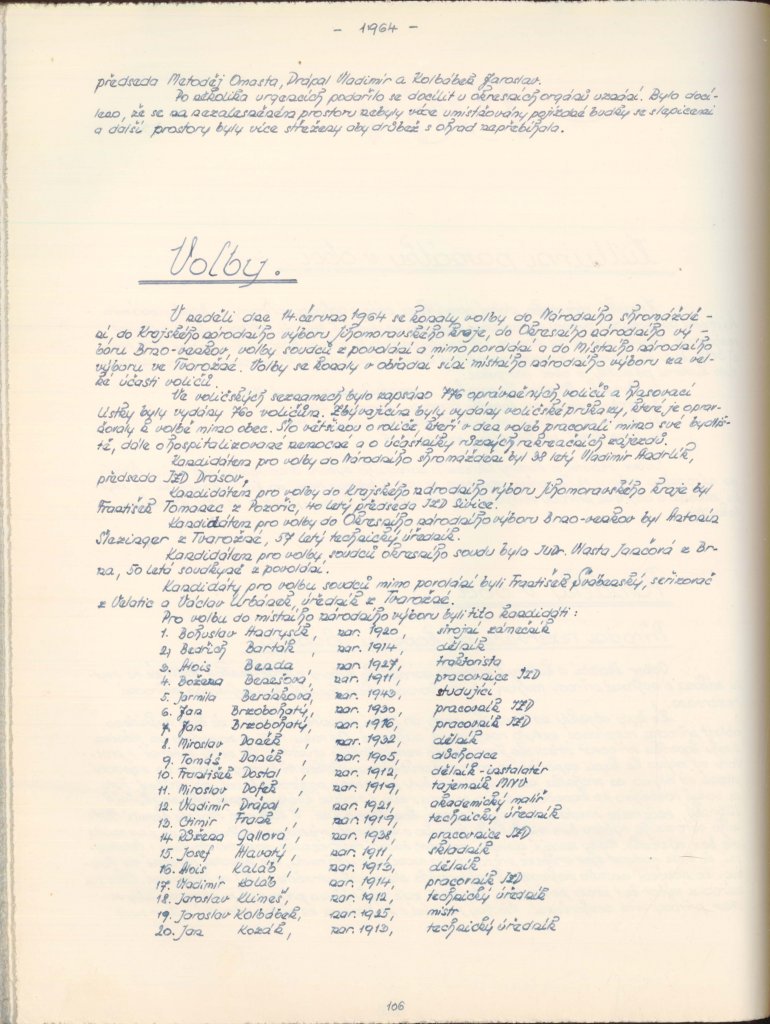 - 1964 -
předseda Metoděj Omasta, Drápal Vladimír a Kolbábek Jaroslav.
Po několika urgencích podařilo se docílit u okresních orgánů uznání. Bylo docí-
leno, že se na nezalesněném prostoru nebyly více umisťovány pojízdné budky se slepicemi
a další prostory byly více střeženy aby drůbež s ohrad nepřebíhala.
Volby.
V neděli dne 14. června 1964 se konaly volby do Národního shromáždě-
ní, do Krajského národního výboru Jihomoravského kraje, do Okresního národního vý-
boru Brno-venkov, volby soudců z povolání a mimo povolání a do Místního národního
výboru ve Tvarožné. Volby se konaly v obřadní síni místního národního výboru za vel-
ké účasti voličů.
Ve voličských seznamech bylo zapsáno 776 oprávněných voličů a hlasovací
lístky byly vydány 760 voličům. Zbývajícím byly vydány voličské průkazy, které je oprav-
ňovaly k volbě mimo obec. Šlo většinou o voliče, kteří v den voleb pracovali mimo své bydliš-
tě, dále o hospitalizované nemocné a o účastníky různých rekreačních zájezdů.
Kandidátem pro volby do Národního shromáždění byl 38 letý Vladimír Handrlík,
předseda JZD Drásov.
Kandidátem pro volby do Krajského národního výboru Jihomoravského kraje byl
František Tomanec z Pozořic, 40 letý předseda JZD Sivice.
Kandidátem pro volby do Okresního národního výboru Brno-venkov byl Antonín
Slezinger z Tvarožné, 57 letý technický úředník.
Kandidátem pro volby soudců okresního soudu byla JUDr. Vlasta Janáčová z Br-
na, 50 letá soudkyně z povolání.
Kandidáty pro volbu soudců mimo povolání byli František seřizovač
z Velatic a Václav Urbánek, úředník z Tvarožné.
Pro volbu do místního národního výboru byli tito kandidáti:
1. Bohuslav Hadrysek, nar. 1920, strojní zámečník
2, Bedřich Barták, nar. 1914, dělník
3. Alois Benda nar. 1927, traktorista
4. Božena Benešová, nar. 1911, pracovnice JZD
5. Jarmila Beránková, nar. 1943, studující
6. Jan Brzobohatý, nar. 1930, pracovník JZD
7. Jan Brzobohatý, nar. 1916, pracovník JZD
8. Miroslav Daněk, nar. 1932, dělník
9. Tomáš Daněk, nar. 1905, důchodce
10. František Dostal, nar. 1912, dělník-instalatér
11. Miroslav Dofek, nar. 1919, tajemník MNV
12. Vladimír Drápal, nar. 1921, akademický malíř
13. Otmir Frank, nar. 1919, technický úředník
14. Růžena Gallová, nar. 1938, pracovnice JZD
15. Josef Hlavatý, nar. 1911, skladník
16. Alois Kaláb, nar. 1913, dělník
17. Vladimír Kaláb, nar. 1914, pracovník JZD
18. Jaroslav Klimeš, nar. 1912, technický úředník
19. Jaroslav Kolbábek, nar. 1925, mistr
20. Jan Kozák, nar. 1913, technický úředník
106